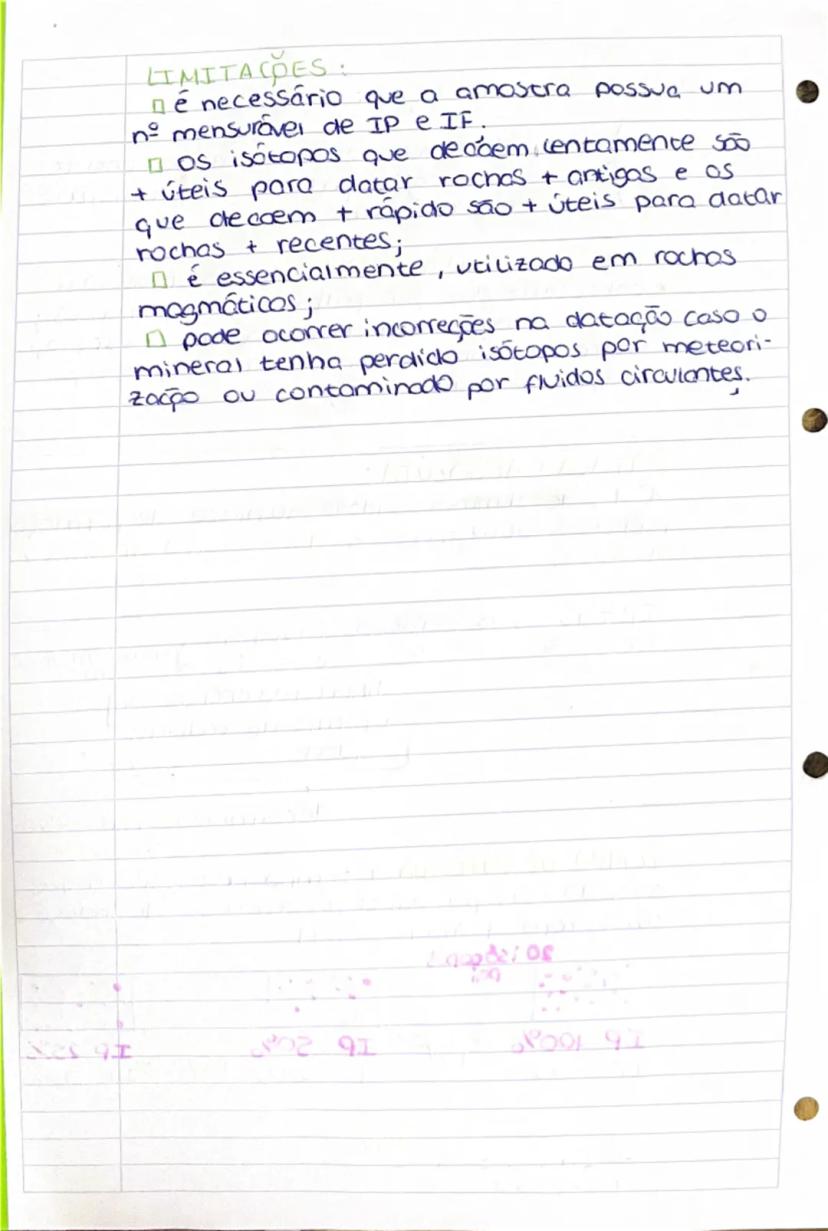 LIMITAÇÕES:
é necessário que a amostra possua um
nº mensurável de IP e IF.
os isótopos que decaem lentamente são
+ úteis para datar rochas + antigas e os
que decaem + rápido são + úteis para datar
rochas + recentes;
é essencialmente, utilizado em rochas
magmáticas;
pode ocorrer incorreções na datação caso o
mineral tenha perdido isótopos por meteori-
zação ou contaminado por fluidos circulantes.
IP 100% IP 50% IP 25%